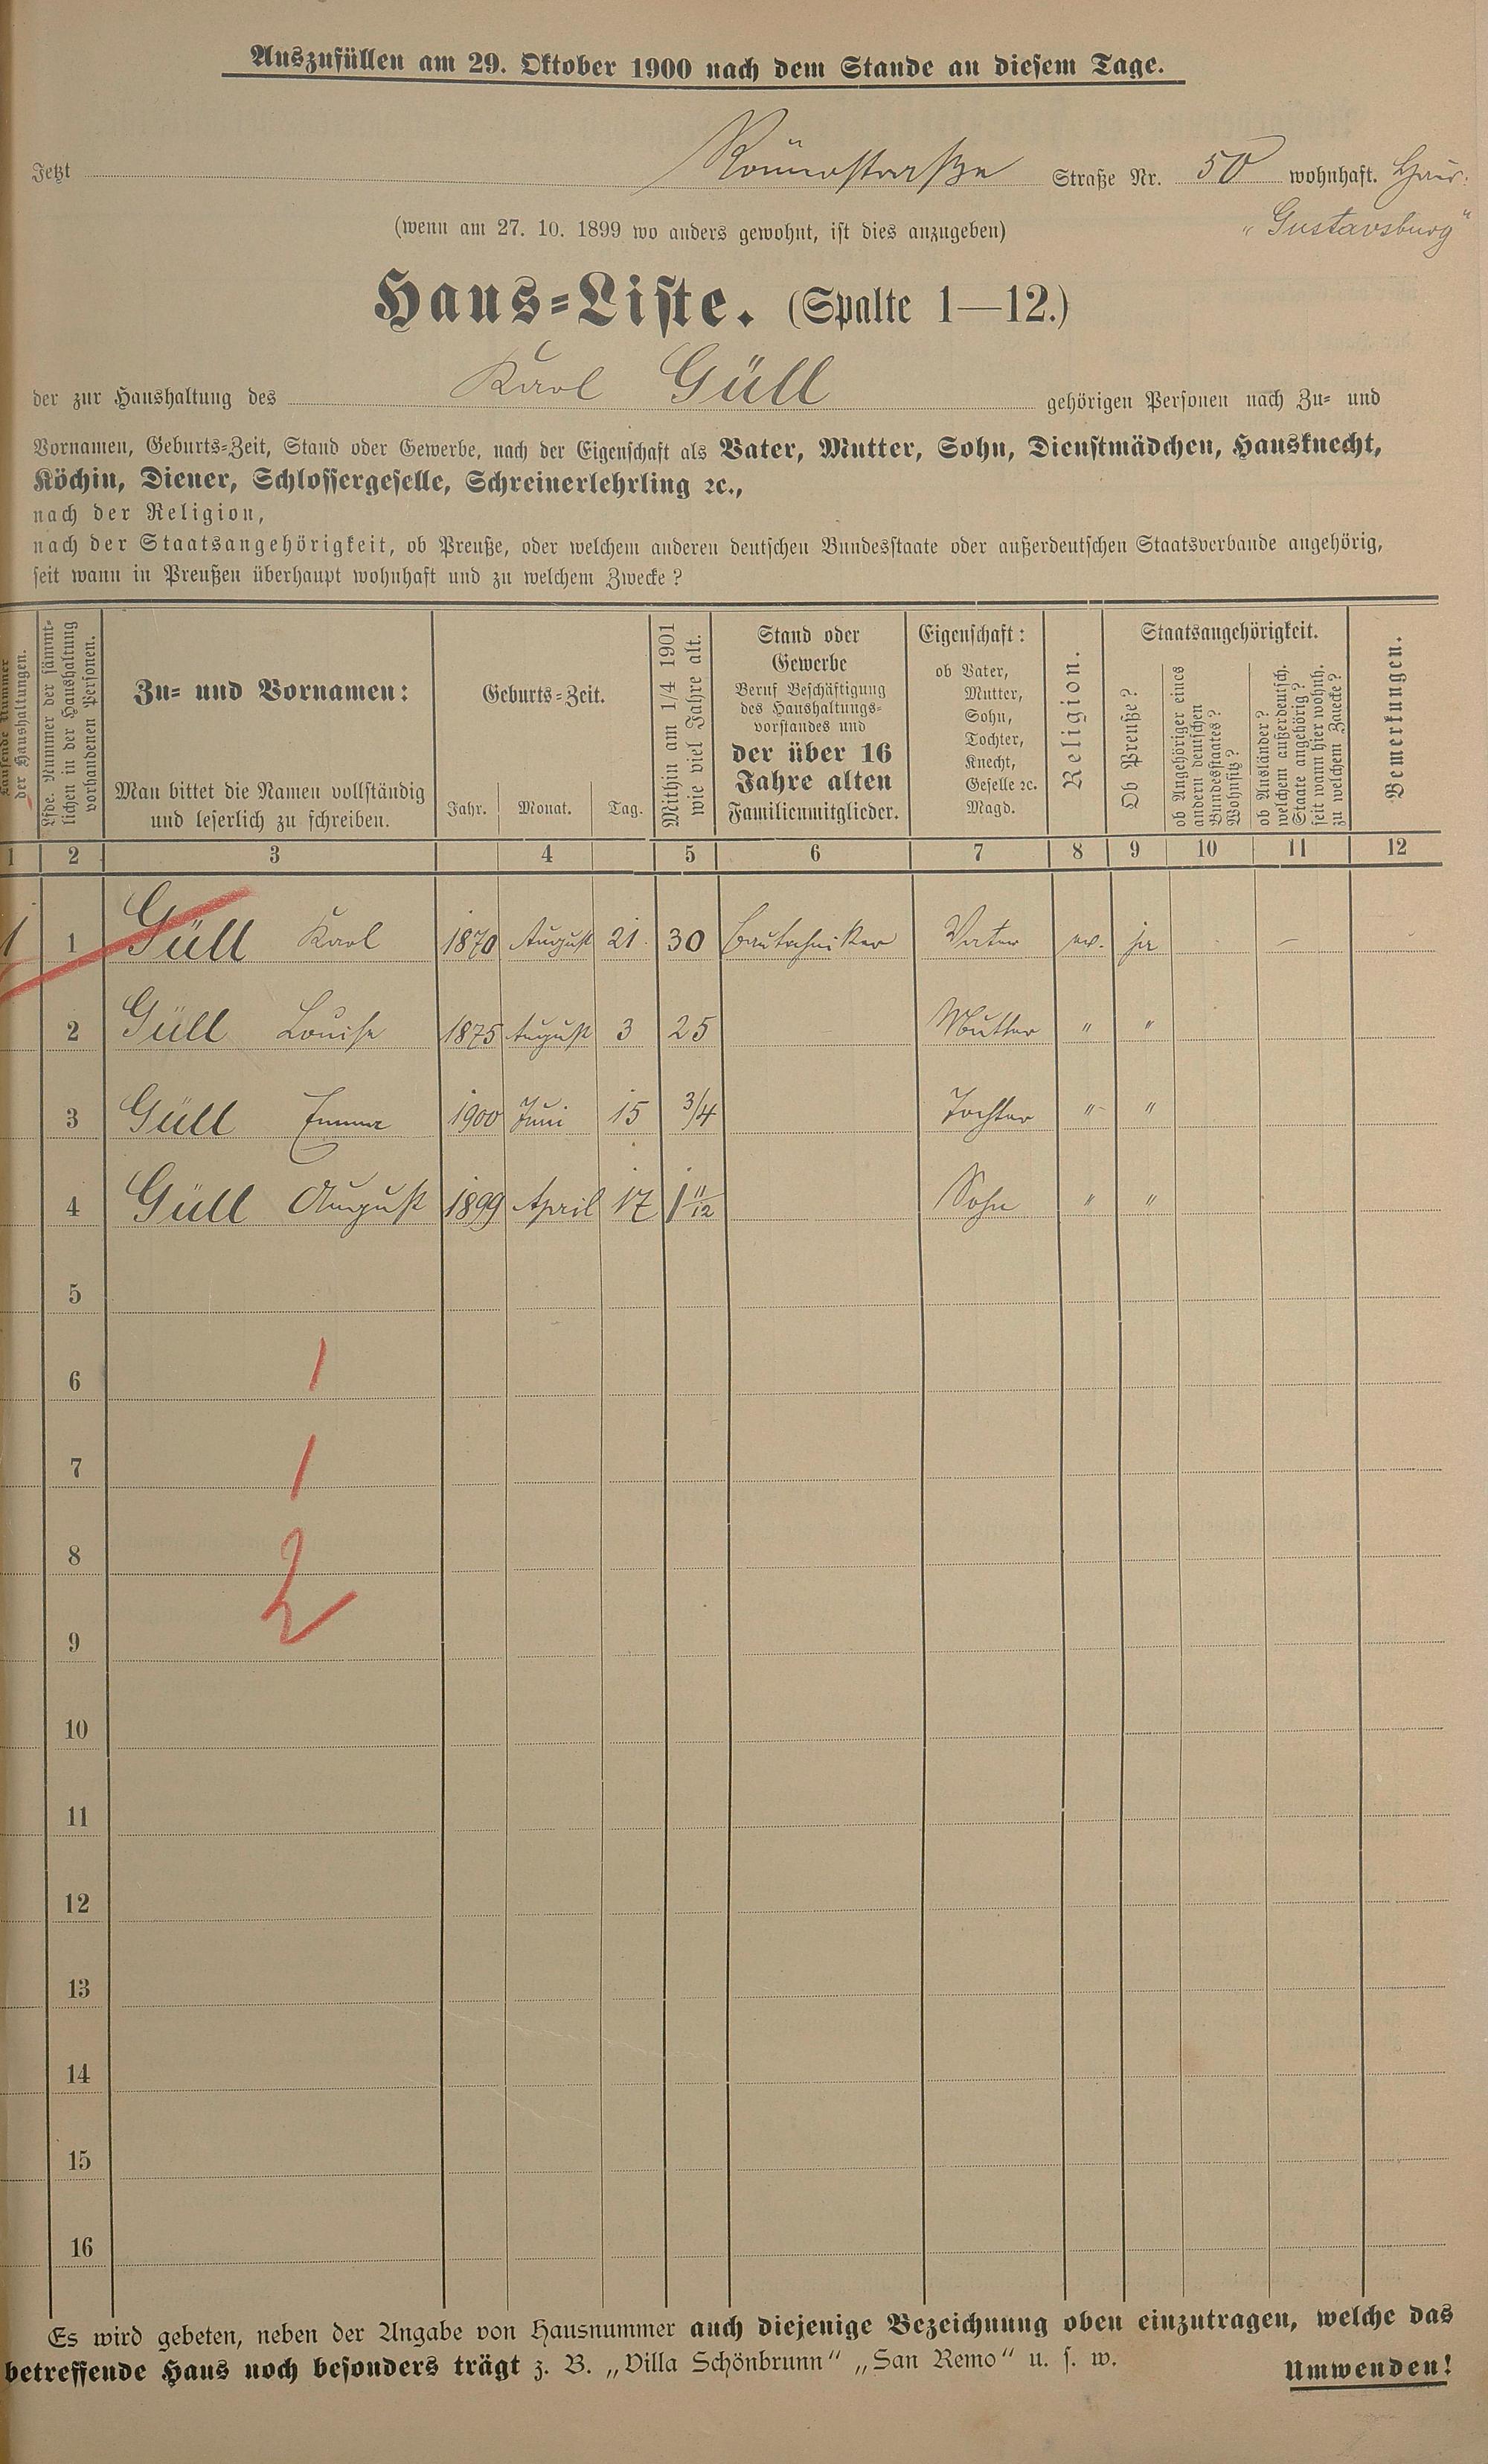 Auszufüllen am 29. Oktober 1900 nach dem Stande an diesem Tage.
Jetzt Straße Nr. 50 wohnhaft. Haus.
„Gustavsburg“
(wenn am 27. 10. 1899 wo anders gewohnt, ist dies anzugeben)
Haus=Liste. (Spalte 1—12.)
der zur Haushaltung des Karl Güll gehörigen Personen nach Zu= und
Vornamen, Geburts=Zeit, Stand oder Gewerbe, nach der Eigenschaft als Vater, Mutter, Sohn, Dienstmädchen, Hausknecht,
Köchin, Diener, Schlossergeselle, Schreinerlehrling ꝛc.,
nach der Religion,
nach der Staatsangehörigkeit, ob Preuße, oder welchem anderen deutschen Bundesstaate oder außerdeutschen Staatsverbande angehörig,
seit wann in Preußen überhaupt wohnhaft und zu welchem Zwecke?
Laufende Nummer
der Haushaltungen.
Lfde. Nummer der sämmt=
lichen in der Haushaltung
vorhandenen Personen.
Zu= und Vornamen:
Man bittet die Namen vollständig
und leserlich zu schreiben.
Geburts=Zeit.
Jahr. Monat. Tag.
Mithin am 1/4 1901
wie viel Jahre alt.
Stand oder
Gewerbe
Beruf Beschäftigung
des Haushaltungs=
vorstandes und
der über 16
Jahre alten
Familienmitglieder.
Eigenschaft:
ob Vater,
Mutter,
Sohn,
Tochter,
Knecht,
Geselle ꝛc.
Magd.
Religion.
Staatsangehörigkeit.
Ob Preuße?
ob Angehöriger eines
andern deutschen
Bundesstaates?
Wohnsitz?
ob Ausländer?
welchem außerdeutsch.
Staate angehörig?
seit wann hier wohnh.
zu welchem Zwecke?
Bemerkungen.
1 2 3 4 5 6 7 8 9 10 11 12
1 1 Güll Karl 1870 August 21. 30 Bautechniker Vater ev. ja - —
2 Güll Louise 1875 August 3 25 Mutter " "
3 Güll Emma 1900 Juni 15 3/4 Tochter " "
4 Güll August 1899 April 17 1 11/12 Sohn " "
5
6 1
7 1
8 2
9
10
11
12
13
14
15
16
Es wird gebeten, neben der Angabe von Hausnummer auch diejenige Bezeichnung oben einzutragen, welche das
betreffende Haus noch besonders trägt z. B. „Villa Schönbrunn“ „San Remo“ u. s. w.
Umwenden!